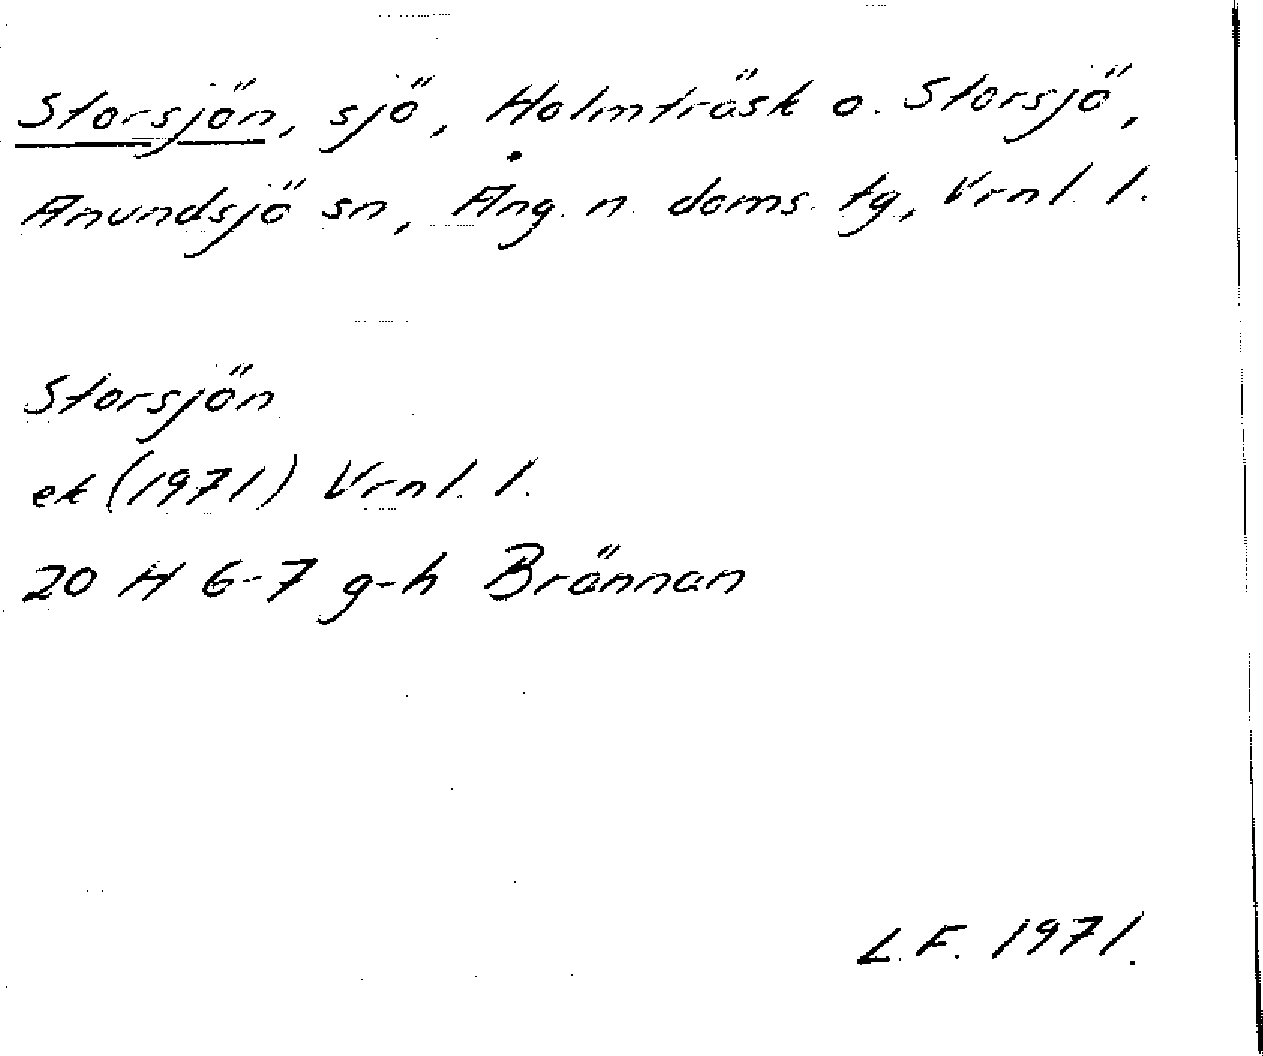 Storsjön, sjö, Holmträsk o. Storsjö,
Anundsjö sn, Ång. n. doms. tg, Vrnl. l.
Storsjön
ek (1971) Vrnl. l.
20 H 6-7 g-h Brännan
L.F. 1971.